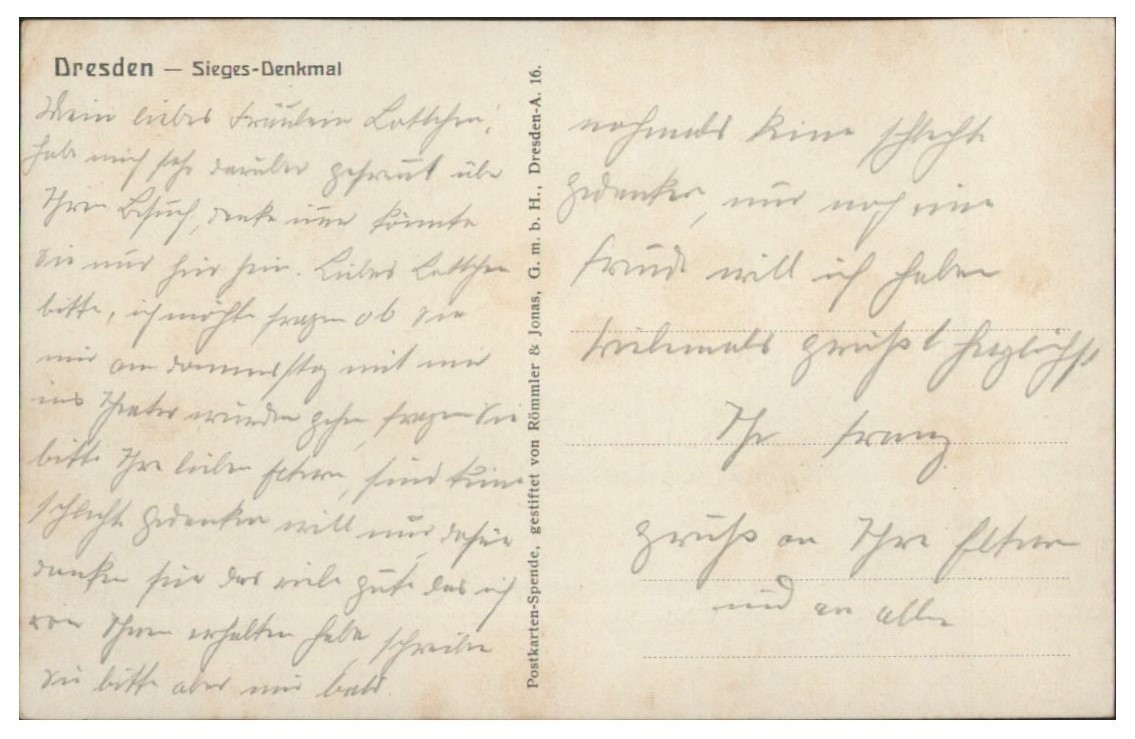 Dresden — Sieges-Denkmal
Mein liebes Fräulein Lottchen,
habe mich sehr darüber gefreut über
Ihren Besuch, denke immer könnte
Sie nur hier sein. Liebes Lottchen
bitte, ich möchte fragen ob Sie
mir am Donnersstag mit mir
ins Theater würden gehn, fragen Sie
bitte Ihre lieben Eltern, sind keine
schlechte Gedanken will nur dafür
danken für das viele gute das ich
von Ihnen erhalten habe, schreiben
Sie bitte aber mir bald.
Postkarten-Spende, gestiftet von Römmler & Jonas, G. m. b. H., Dresden-A. 16.
nochmals keine schlechte
Gedanken, nur noch eine
Freude will ich haben
vielemals grüßt herzlichst
Ihr Franz
Gruß an Ihre Eltern
und an alle